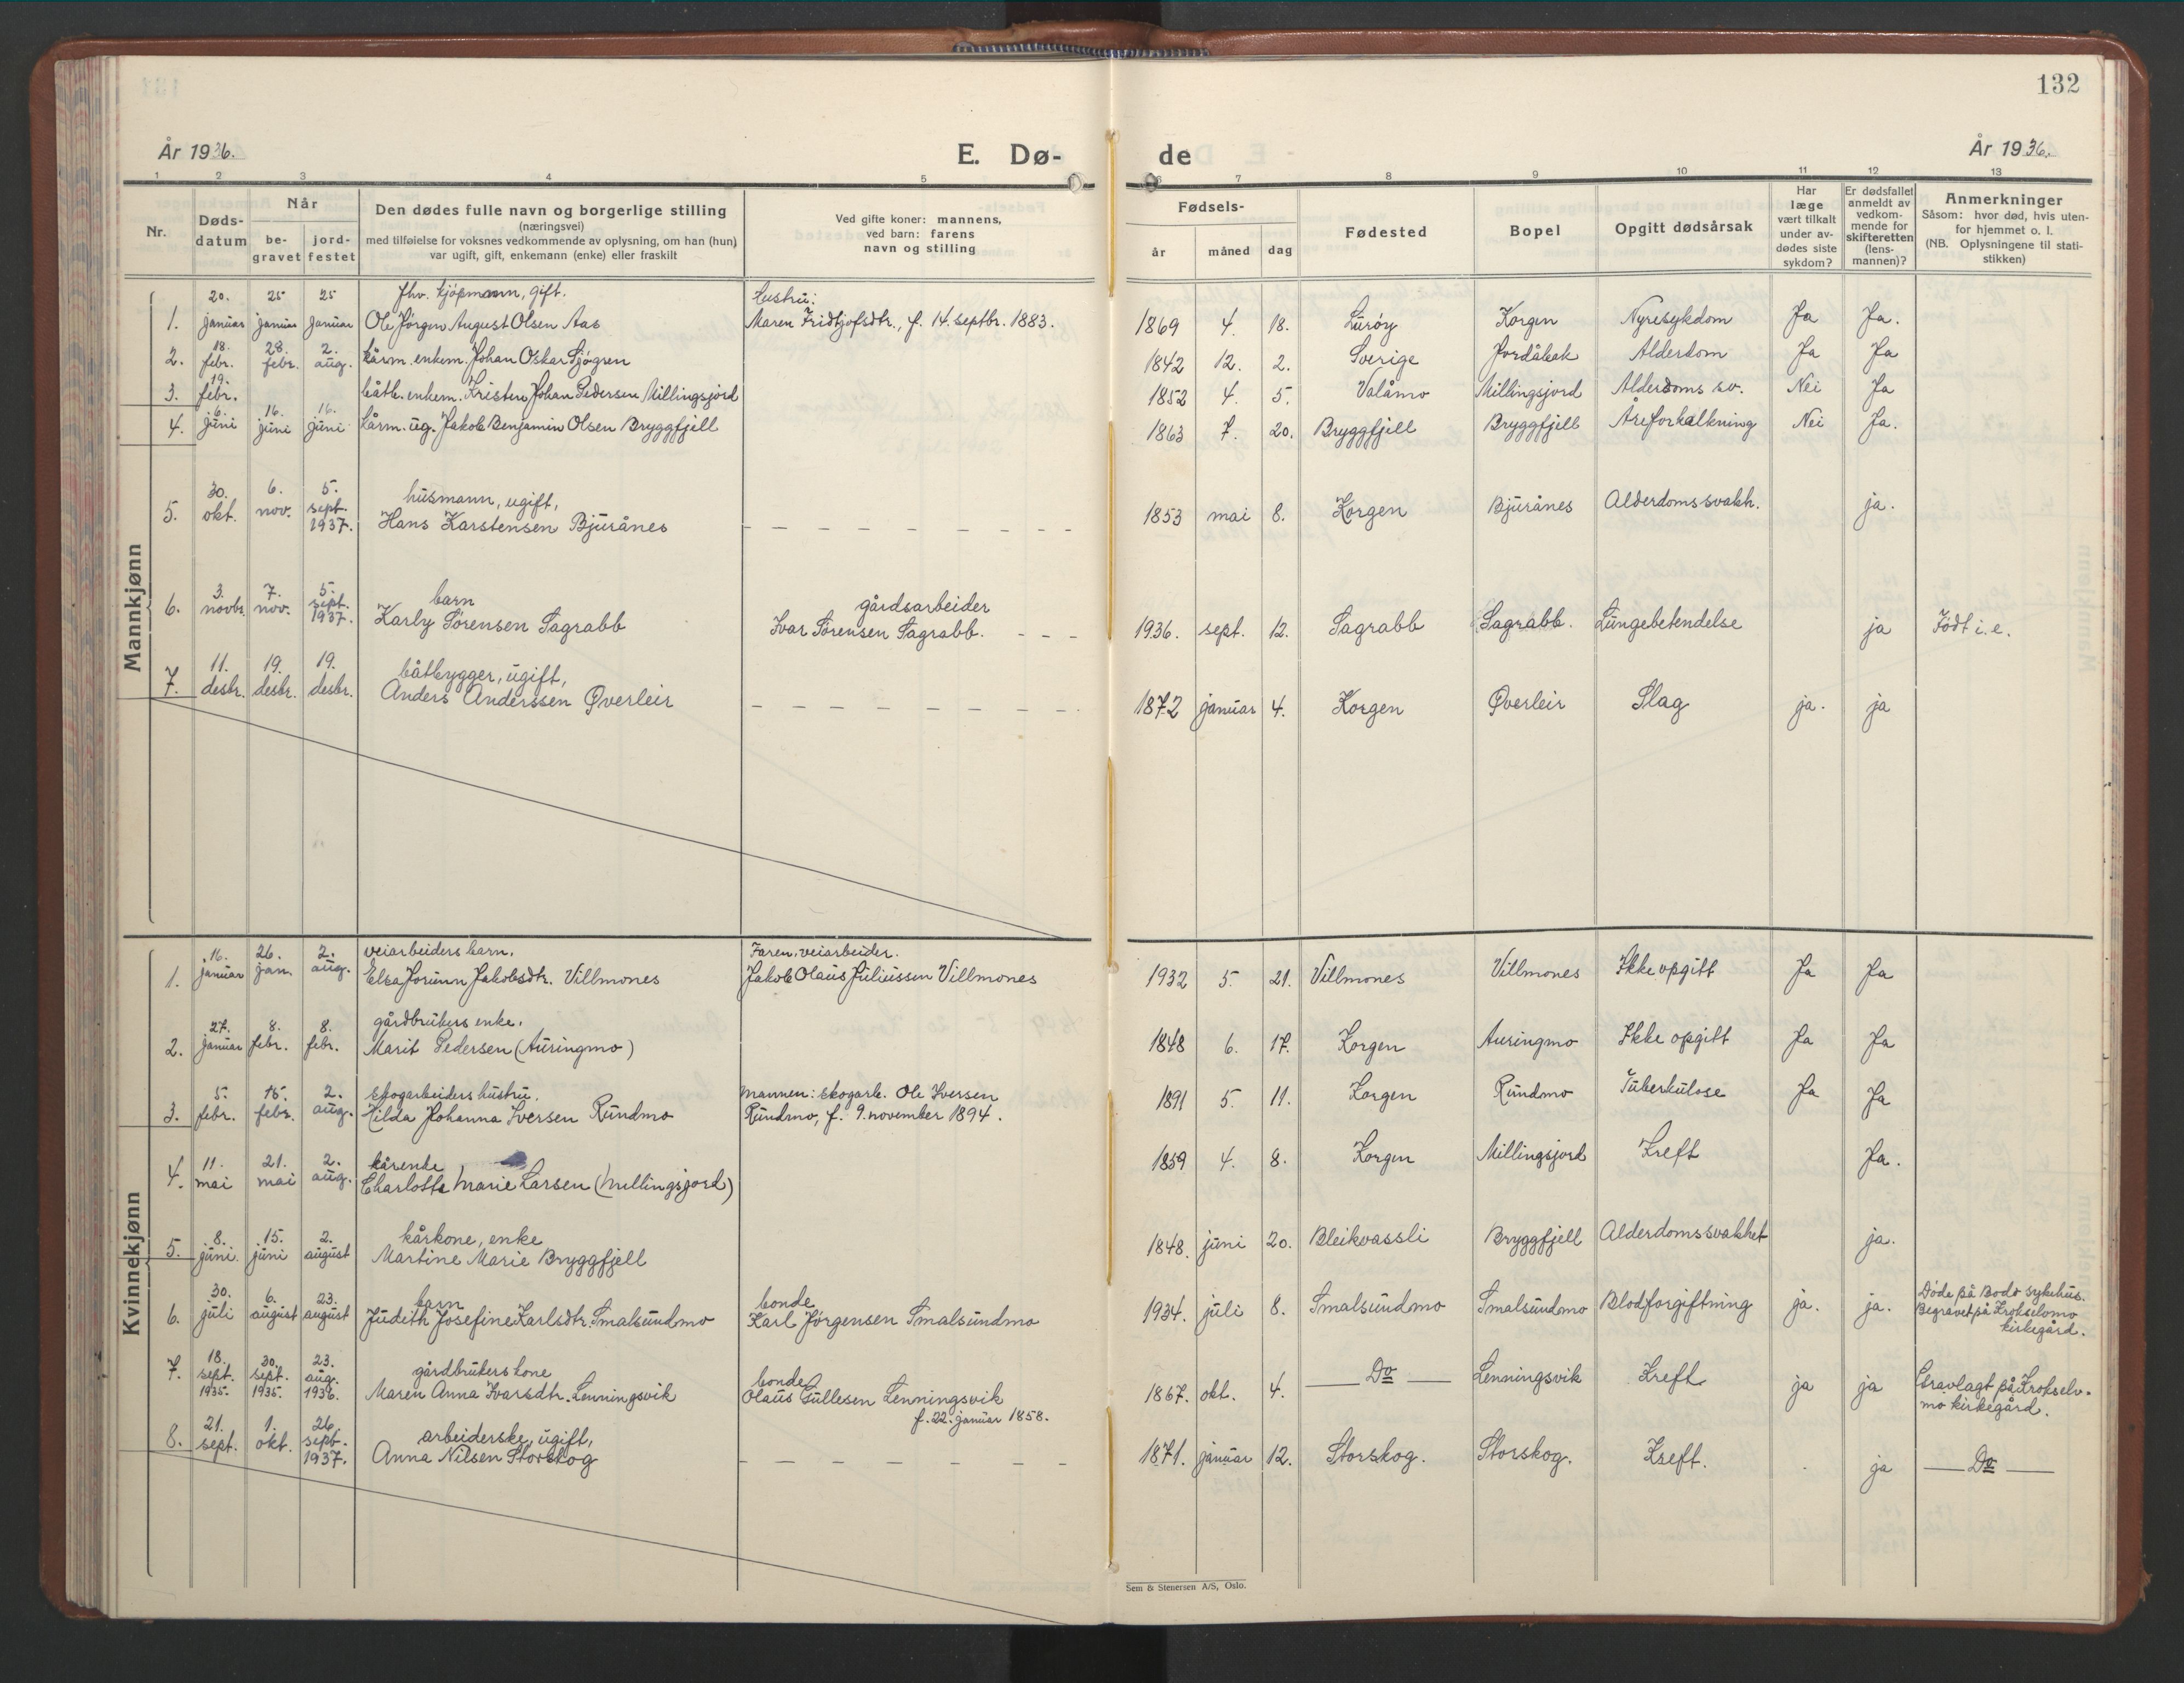 132
År 1936.
E. Dø-
de
År 1936.
1 2 3 4 5
6 7 8 9 10 11 12 13
Nr.
Døds-
datum
Når
be-
gravet
jord-
festet
Den dødes fulle navn og borgerlige stilling
(næringsvei)
med tilføielse for voksnes vedkommende av oplysning, om han (hun)
var ugift, gift, enkemann (enke) eller fraskilt
Ved gifte koner: mannens,
ved barn: farens
navn og stilling
Fødsels-
år måned dag
Fødested
Bopel
Opgitt dødsårsak
Har
læge
vært tilkalt
under av-
dødes siste
sykdom?
Er dødsfallet
anmeldt av
vedkom-
mende for
skifteretten
(lens-
mannen)?
Anmerkninger
Såsom: hvor død, hvis uten-
for hjemmet o. l.
(NB. Oplysningene til stati-
stikken)
Mannkjønn
20. 25 25 fhv. kjøpmann, gift. Hustru:
1. januar januar januar Ole Jørgen August Olsen Aas Maren Fridtjofsdtr., f. 14. septbr. 1883. 1869 4. 18. Lurøy Korgen Nyresykdom Ja Ja.
18. 28. 2.
2. febr. febr. aug. kårm. enkem. Johan Oskar Sjøgren 1842 12. 2. Sverige Jordåbak Alderdom Ja Ja
19.
3. febr. båtb. enkem. Kristen Johan Pedersen Millingsjord 1852 4. 5. Valåmo Millingsjord Alderdoms sv. Nei Ja
6. 16. 16.
4. juni juni juni kårm. ug. Jakob Benjamin Olsen Bryggfjell 1863 7. 20. Bryggfjell Bryggfjell Åreforkalkning Nei Ja.
30. 6. 5. husmann, ugift,
5. okt. nov. sept. 1937. Hans Karstensen Bjurånes 1853 mai 8. Korgen Bjurånes Alderdomssvakh. ja.
3. 7. 5. barn gårdsarbeider
6. novbr. nov. sept. 1937. Karly Sørensen Sagrabb Ivar Sørensen Sagrabb. 1936. sept. 12. Sagrabb Sagrabb. Lungebetendelse ja Født i.e.
11. 19. 19. båtbygger, ugift,
7. desbr. desbr. desbr. Anders Anderssen Øverleir 1872 januar 4. Korgen Øverleir Slag ja. ja
Kvinnekjønn
16. 26. 2. veiarbeiders barn. Faren: veiarbeider.
1. januar jan. aug. Elsa Jorunn Jakobsdtr. Villmones Jakob Olaus Juliussen Villmones 1932 5. 21. Villmones Villmones Ikke opgitt Ja Ja
27. 8. 8. gårdbrukers enke.
2. januar febr. febr. Marit Pedersen (Auringmo) 1848 6. 17. Korgen Auringmo Ikke opgitt Ja Ja
5. 15. 2. skogarbeiders hustru. Mannen: skogarb. Ole Iversen
3. febr. febr. aug. Hilda Johanna Iversen Rundmo Rundmo, f. 9. november 1894. 1891 5. 11. Korgen Rundmo Tuberkulose Ja Ja
11. 21. 2. kårenke
4. mai mai aug. Charlotte Marie Larsen (Millingsjord) 1859 4. 8. Korgen Millingsjord Kreft Ja.
8. 15. 2. kårkone, enke
5. juni juni august Martine Marie Bryggfjell 1848. juni 20. Bleikvassli Bryggfjell Alderdomssvakhet ja.
30. 6. 23. barn bonde
6. juli august august Judith Josefine Karlsdtr. Smalsundmo Karl Jørgensen Smalsundmo 1934. juli 8. Smalsundmo Smalsundmo Blodforgiftning ja. ja. Døde på Bodø sykehus.
Begravet på Krokselvmo
kirkegård.
18. 30. 23. gårdbrukers kone bonde
7. sept. 1935. sept. 1935. aug. 1936. Maren Anna Ivarsdtr. Lenningsvik Olaus Gullesen Lenningsvik
f. 22. januar 1858. 1867. okt. 4. Do Lenningsvik Kreft ja ja Gravlagt på Krokselv-
mo kirkegård.
21. 1. 26. arbeiderske, ugift,
8. sept. okt. sept. 1937. Anna Nilsen Storskog 1871. januar 12. Storskog. Storskog. Kreft. ja Do
Sem & Stenersen A/S, Oslo.